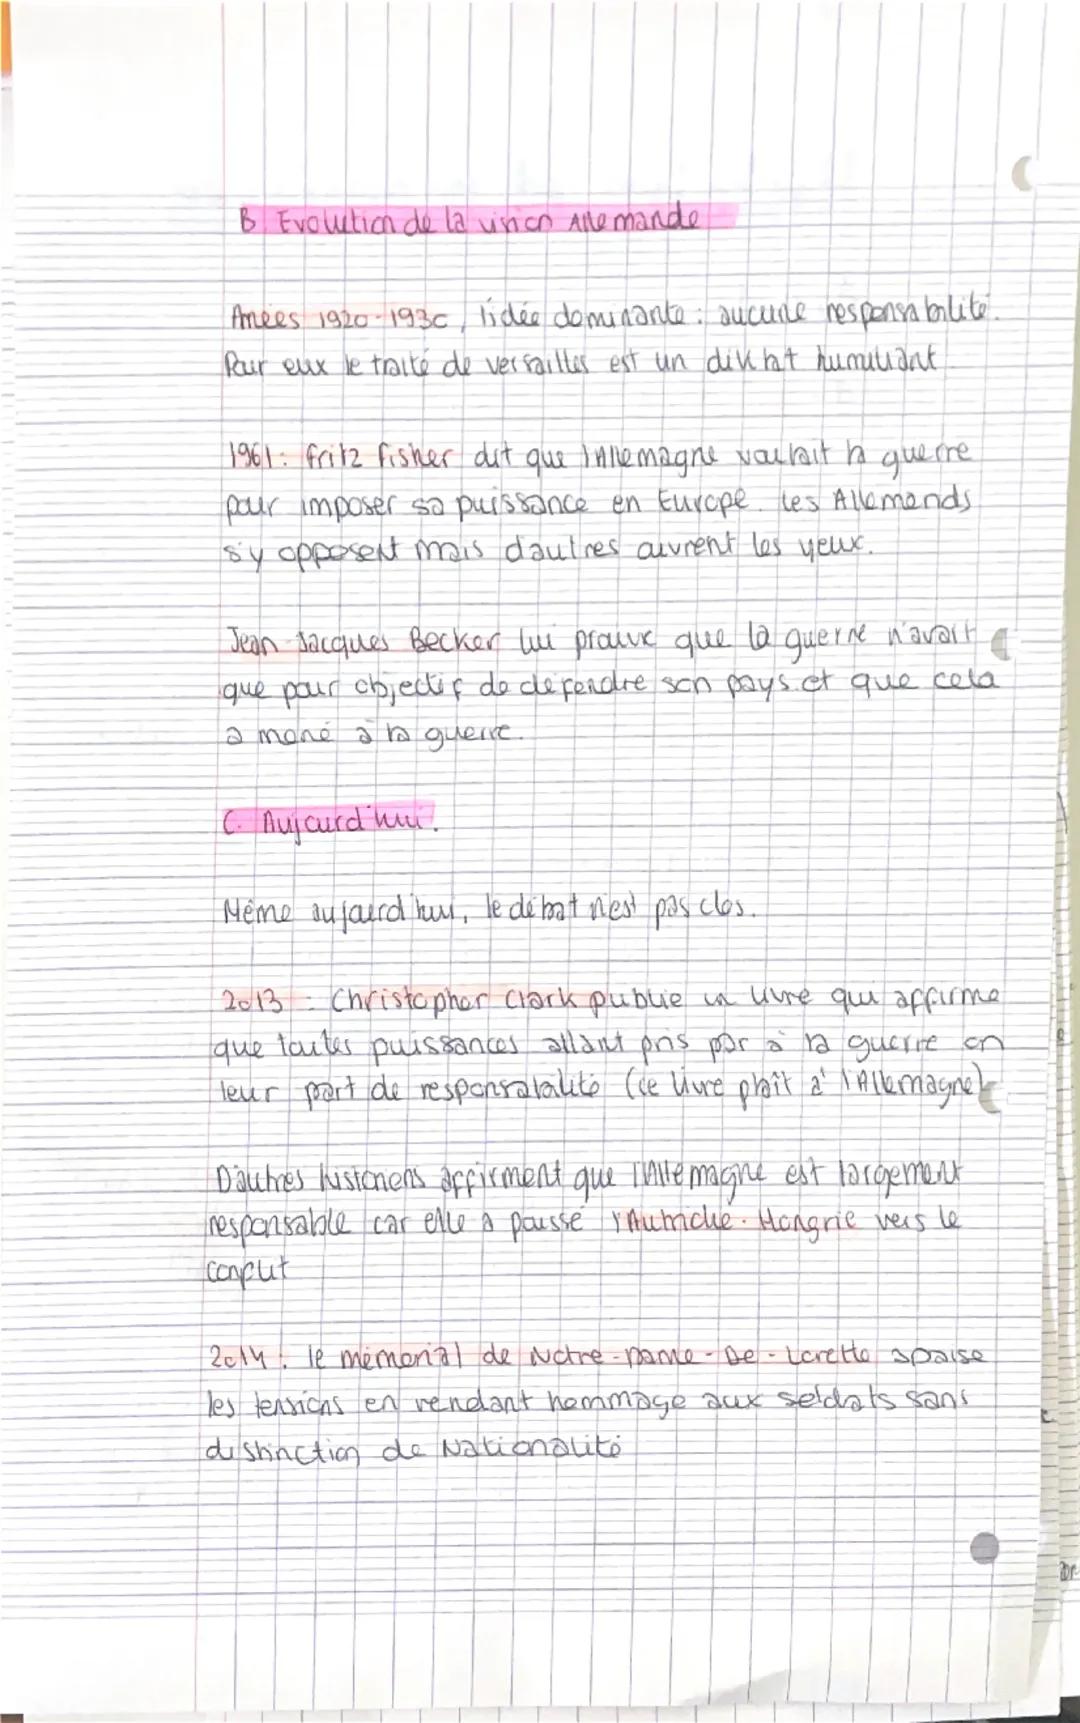 B. Evolution de la vision Allemande
Anées 1920-1930, l'idée dominante : aucune responsabilité.
Pour eux le traité de versailles est un diktat humiliant
1961 : fritz fisher dit que l'Allemagne voulait la guerre
pour imposer sa puissance en Europe. Les Allemands
s'y opposent mais d'autres ouvrent les yeux.
Jean-Jacques Becker lui prouve que la guerre n'avait
que pour objectif de défendre son pays et que cela
a mené à la guerre.
C. Aujourd'hui.
Même aujourd'hui, le débat n'est pas clos.
2013 : Christopher Clark publie un livre qui affirme
que toutes puissances allant pris par à la guerre on
leur part de responsabilité (ce livre plaît à l'Allemagne)
D'autres historiens affirment que l'Allemagne est largement
responsable car elle a poussé l'Autriche-Hongrie vers le
conflit
2014 : le mémorial de Notre-Dame-De-Lorette apaise
les tensions en rendant hommage aux soldats sans
distinction de Nationalité